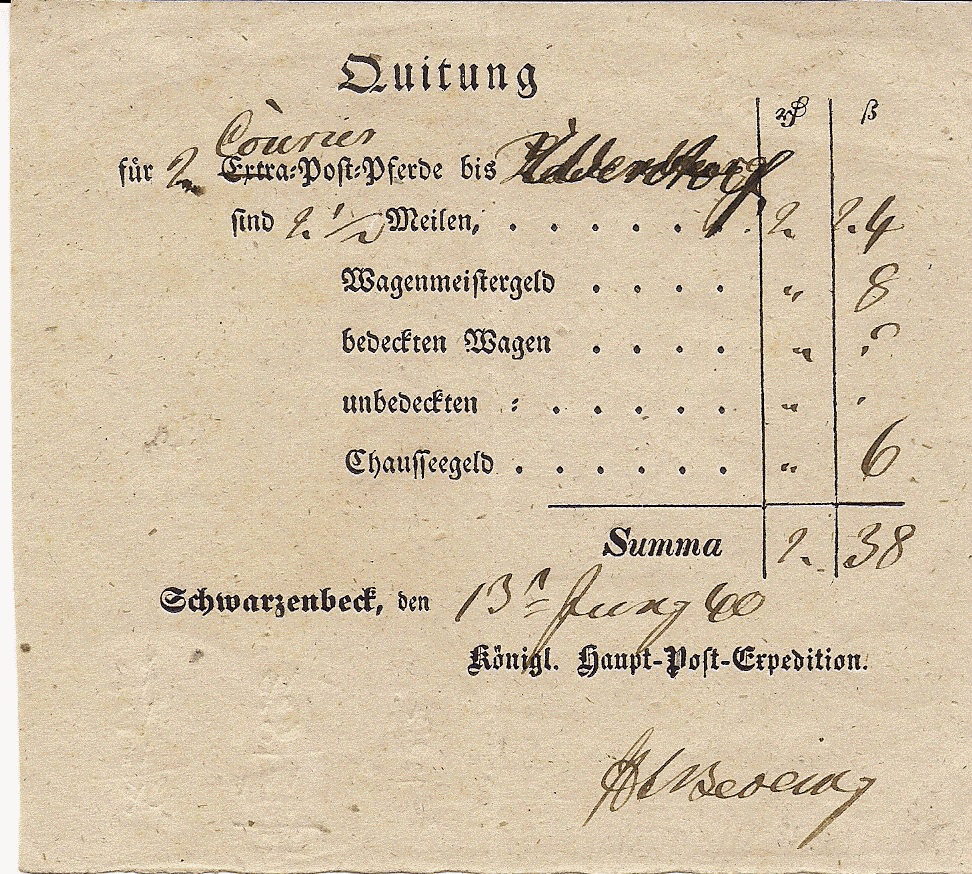 Quitung
rβ ß
Courier
für 2 Extra-Post-Pferde bis
sind 2 1/2 Meilen, . . . . . . 2. 24
Wagenmeistergeld . . . . " 8
bedeckten Wagen . . . . "
unbedeckten : . . . . . "
Chausseegeld . . . . . . " 6
Summa 2. 38
Schwarzenbeck, den 13ᵗ Juny 40
Königl. Haupt-Post-Expedition.